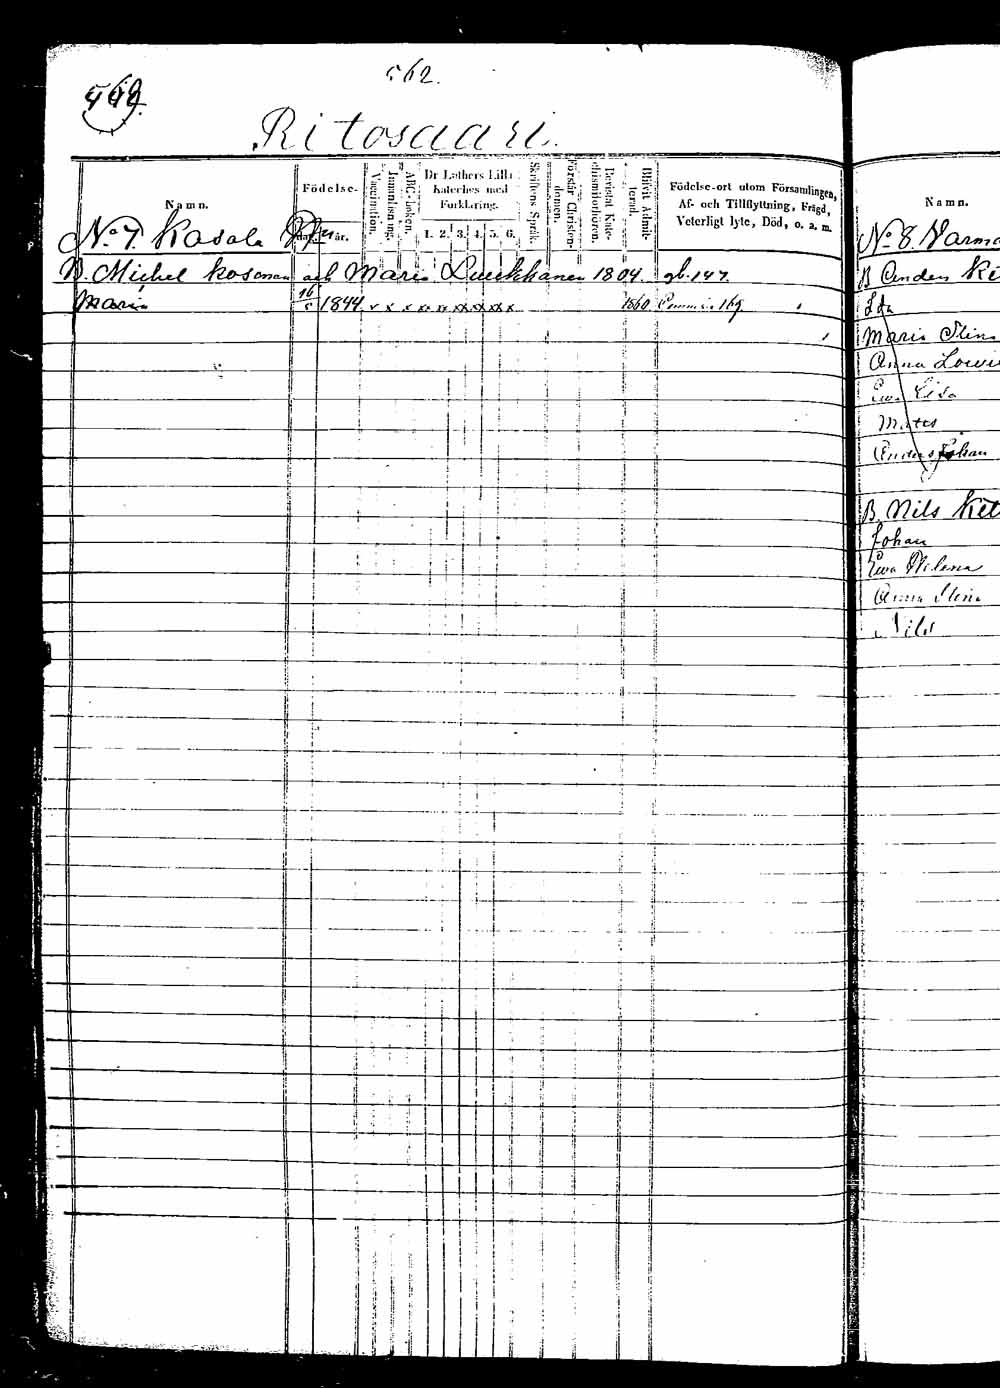 562.
569.
Ritosaari.
Namn.
Födelse-
dag. år.
Vaccination.
Innanläsning.
ABC-boken.
Dr Luthers Lilla
Kateches med
Förklaring.
1. 2. 3. 4. 5. 6.
Skriftens Språk.
Förstår Christendomen.
Bevistat Katechismiförhören.
Blifvit Admitterad.
Födelse-ort utom Församlingen,
Af- och Tillflyttning, Frägd,
Veterligt lyte, Död, o. a. m.
No 7. Kosola
B. Michel Kosonen och Maria 1804. gb. 147.
Maria 16 1844. v x x xx xx xx xx x 1860 169.
Namn.
No 8. Varmo
B Anders Ki
Ida
Maria Stina
Anna Lowi
Ewa Lisa
Mates
Anders Johan
B. Nils Ket
Johan
Ewa Helena
Anna Stina
Nils